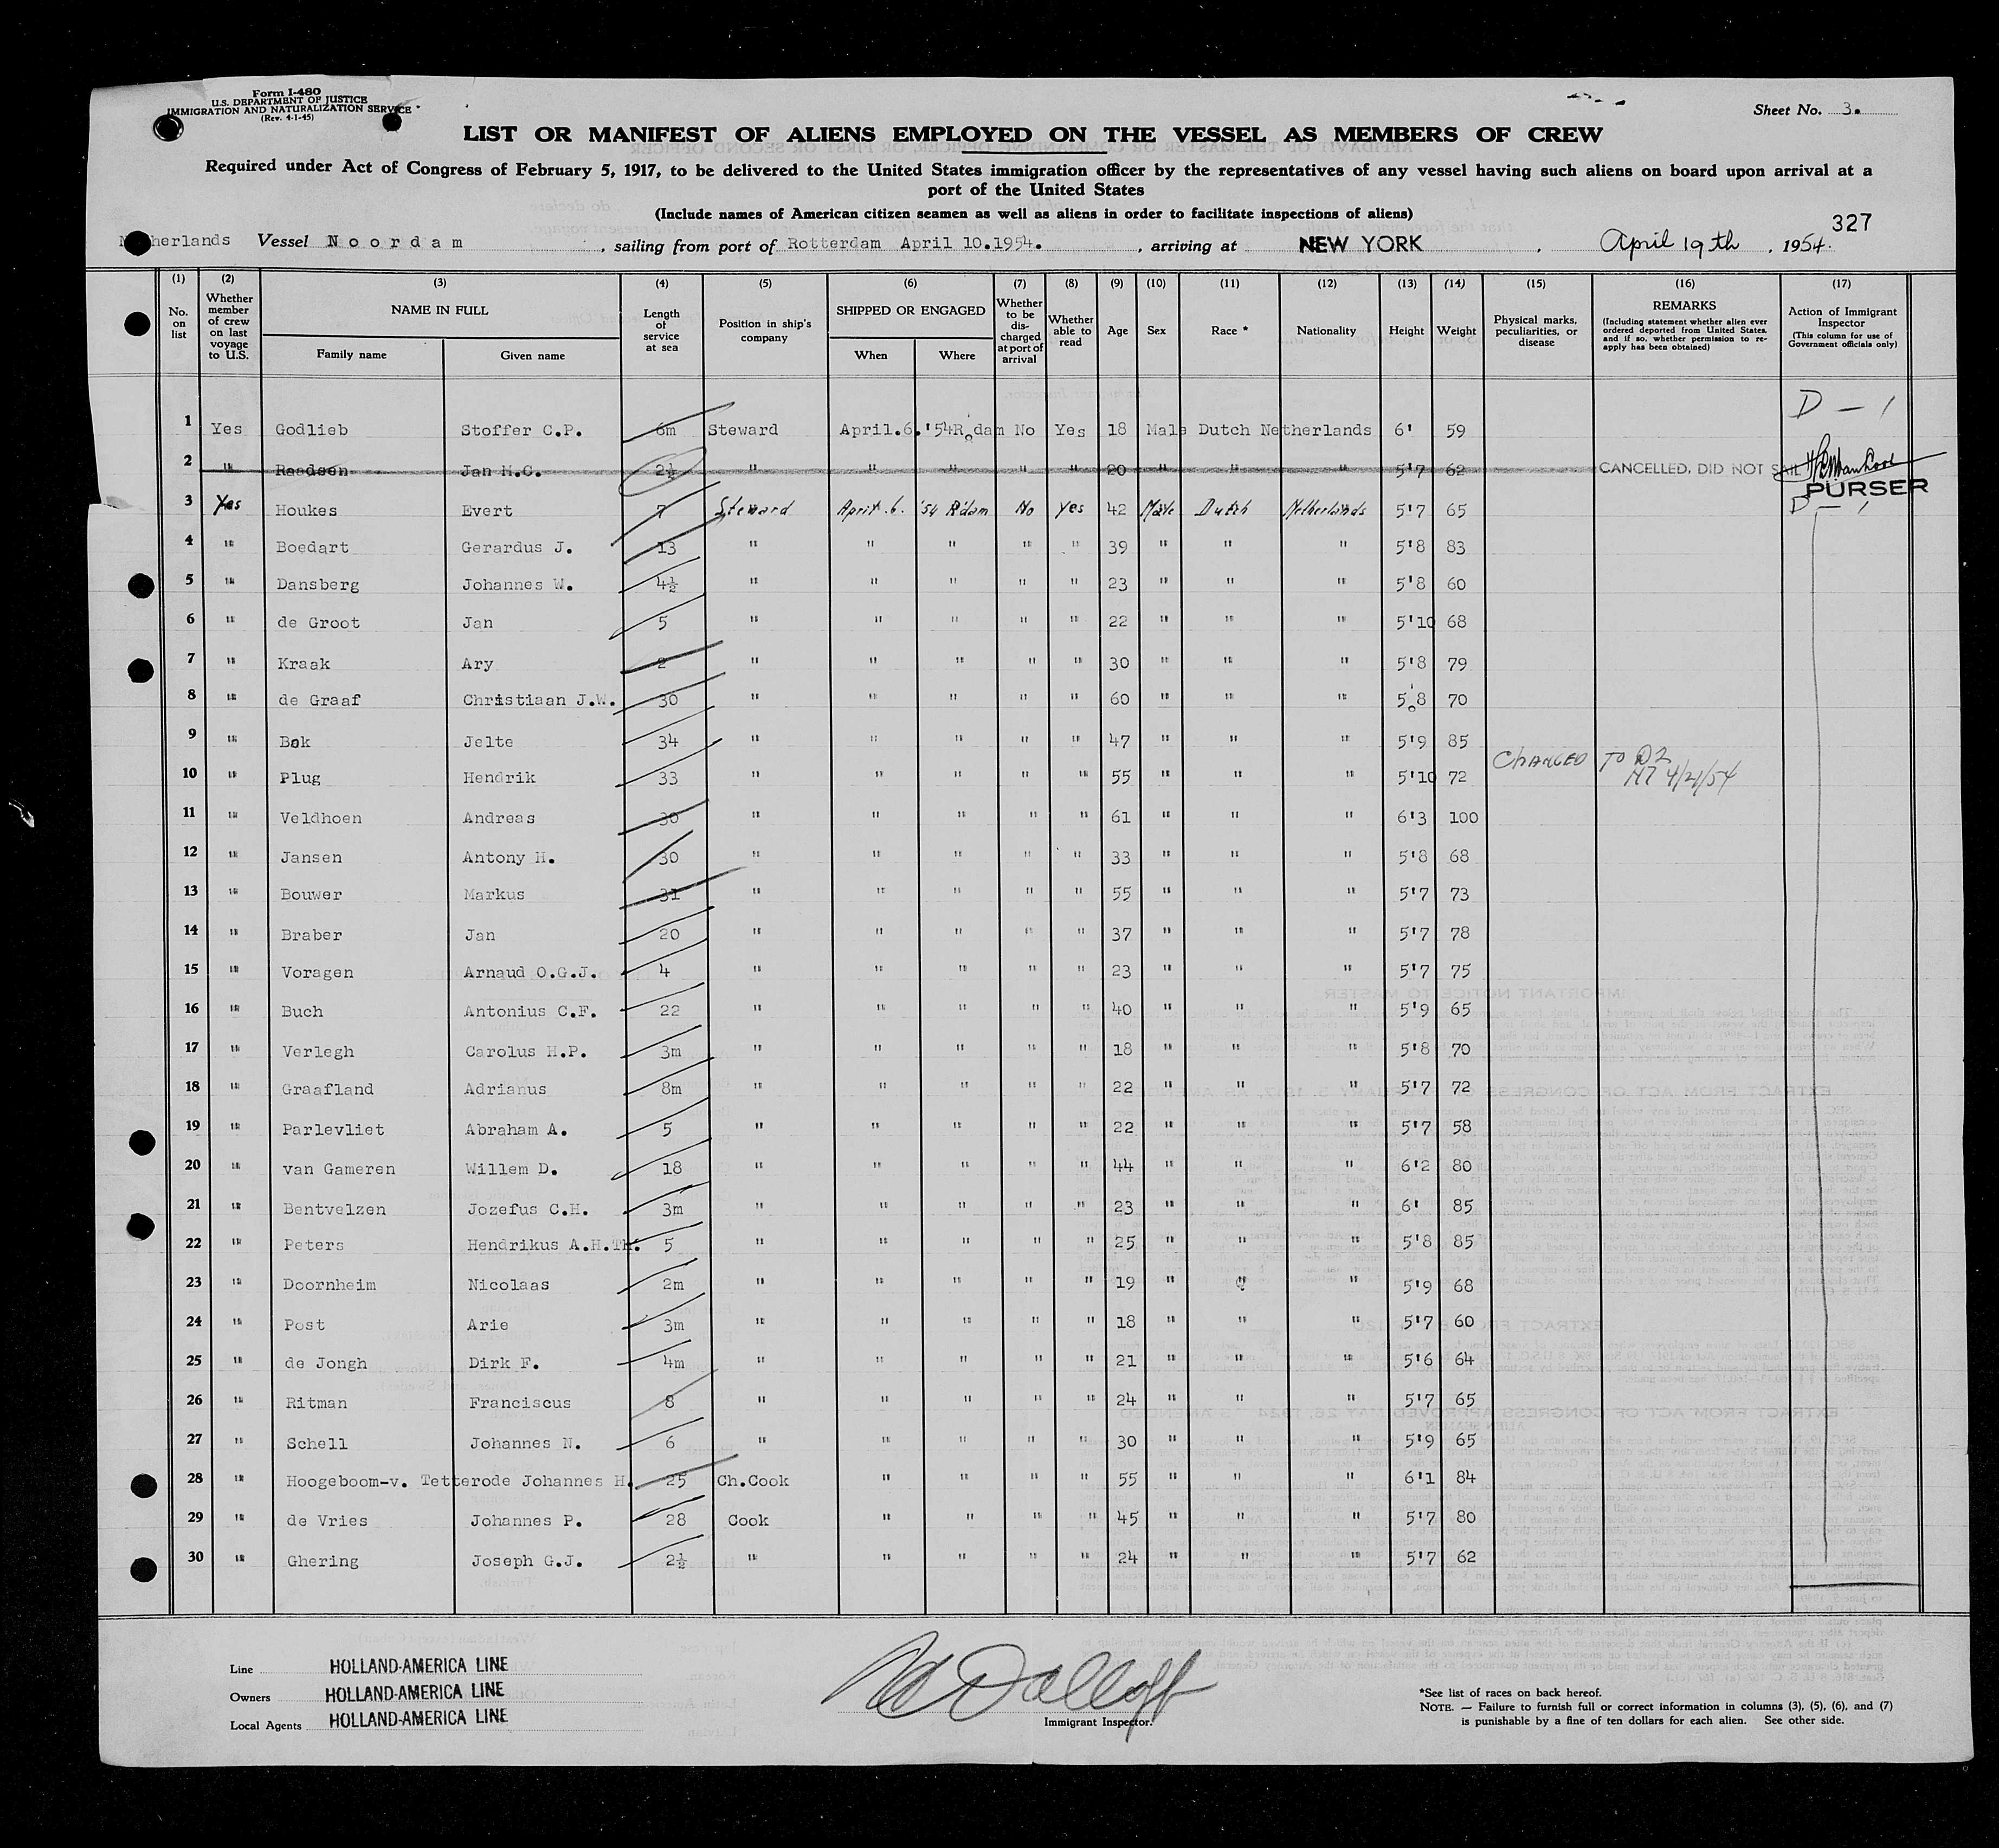 Form I-480
U.S. DEPARTMENT OF JUSTICE
IMMIGRATION AND NATURALIZATION SERVICE
(Rev. 4-1-45)
Sheet No. 3.
LIST OR MANIFEST OF ALIENS EMPLOYED ON THE VESSEL AS MEMBERS OF CREW
Required under Act of Congress of February 5, 1917, to be delivered to the United States immigration officer by the representatives of any vessel having such aliens on board upon arrival at a
port of the United States
(Include names of American citizen seamen as well as aliens in order to facilitate inspections of aliens)
327
Netherlands Vessel Noordam, sailing from port of Rotterdam April 10.1954., arriving at NEW YORK, April 19th, 1954.
(1) No. on list (2) Whether member of crew on last voyage to U.S. (3) NAME IN FULL Family name Given name (4) Length of service at sea (5) Position in ship's company (6) SHIPPED OR ENGAGED When Where (7) Whether to be discharged at port of arrival (8) Whether able to read (9) Age (10) Sex (11) Race * (12) Nationality (13) Height (14) Weight (15) Physical marks, peculiarities, or disease (16) REMARKS (Including statement whether alien ever ordered deported from United States, and if so, whether permission to re-apply has been obtained) (17) Action of Immigrant Inspector (This column for use of Government officials only)
D - 1
1 Yes Godlieb Stoffer C.P. 6m Steward April.6.'54 R.dam No Yes 18 Male Dutch Netherlands 6' 59
2 " Raadsen Jan M.C. 2½ " " " " " 20 " " " 5'7 62 CANCELLED, DID NOT SAIL
PURSER
3 Yes Houkes Evert 7 Steward April.6. '54 R'dam No Yes 42 Male Dutch Netherlands 5'7 65 D - 1
4 " Boedart Gerardus J. 13 " " " " " 39 " " " 5'8 83
5 " Dansberg Johannes W. 4½ " " " " " 23 " " " 5'8 60
6 " de Groot Jan 5 " " " " " 22 " " " 5'10 68
7 " Kraak Ary 2 " " " " " 30 " " " 5'8 79
8 " de Graaf Christiaan J.W. 30 " " " " " 60 " " " 5'8 70
9 " Bok Jelte 34 " " " " " 47 " " " 5'9 85
CHANGED TO D2
10 " Plug Hendrik 33 " " " " " 55 " " " 5'10 72 4/21/54
11 " Veldhoen Andreas 30 " " " " " 61 " " " 6'3 100
12 " Jansen Antony H. 30 " " " " " 33 " " " 5'8 68
13 " Bouwer Markus 31 " " " " " 55 " " " 5'7 73
14 " Braber Jan 20 " " " " " 37 " " " 5'7 78
15 " Voragen Arnaud O.G.J. 4 " " " " " 23 " " " 5'7 75
16 " Buch Antonius C.F. 22 " " " " " 40 " " " 5'9 65
17 " Verlegh Carolus H.P. 3m " " " " " 18 " " " 5'8 70
18 " Graafland Adrianus 8m " " " " " 22 " " " 5'7 72
19 " Parlevliet Abraham A. 5 " " " " " 22 " " " 5'7 58
20 " van Gameren Willem D. 18 " " " " " 44 " " " 6'2 80
21 " Bentvelzen Jozefus C.H. 3m " " " " " 23 " " " 6' 85
22 " Peters Hendrikus A.H.Th. 5 " " " " " 25 " " " 5'8 85
23 " Doornheim Nicolaas 2m " " " " " 19 " " " 5'9 68
24 " Post Arie 3m " " " " " 18 " " " 5'7 60
25 " de Jongh Dirk F. 4m " " " " " 21 " " " 5'6 64
26 " Ritman Franciscus 8 " " " " " 24 " " " 5'7 65
27 " Schell Johannes N. 6 " " " " " 30 " " " 5'9 65
28 " Hoogeboom-v. Tetterode Johannes H. 25 Ch.Cook " " " " 55 " " " 6'1 84
29 " de Vries Johannes P. 28 Cook " " " " 45 " " " 5'7 80
30 " Ghering Joseph G.J. 2½ " " " " " 24 " " " 5'7 62
Line HOLLAND-AMERICA LINE
Owners HOLLAND-AMERICA LINE
Local Agents HOLLAND-AMERICA LINE
Immigrant Inspector.
*See list of races on back hereof.
NOTE. — Failure to furnish full or correct information in columns (3), (5), (6), and (7)
is punishable by a fine of ten dollars for each alien. See other side.